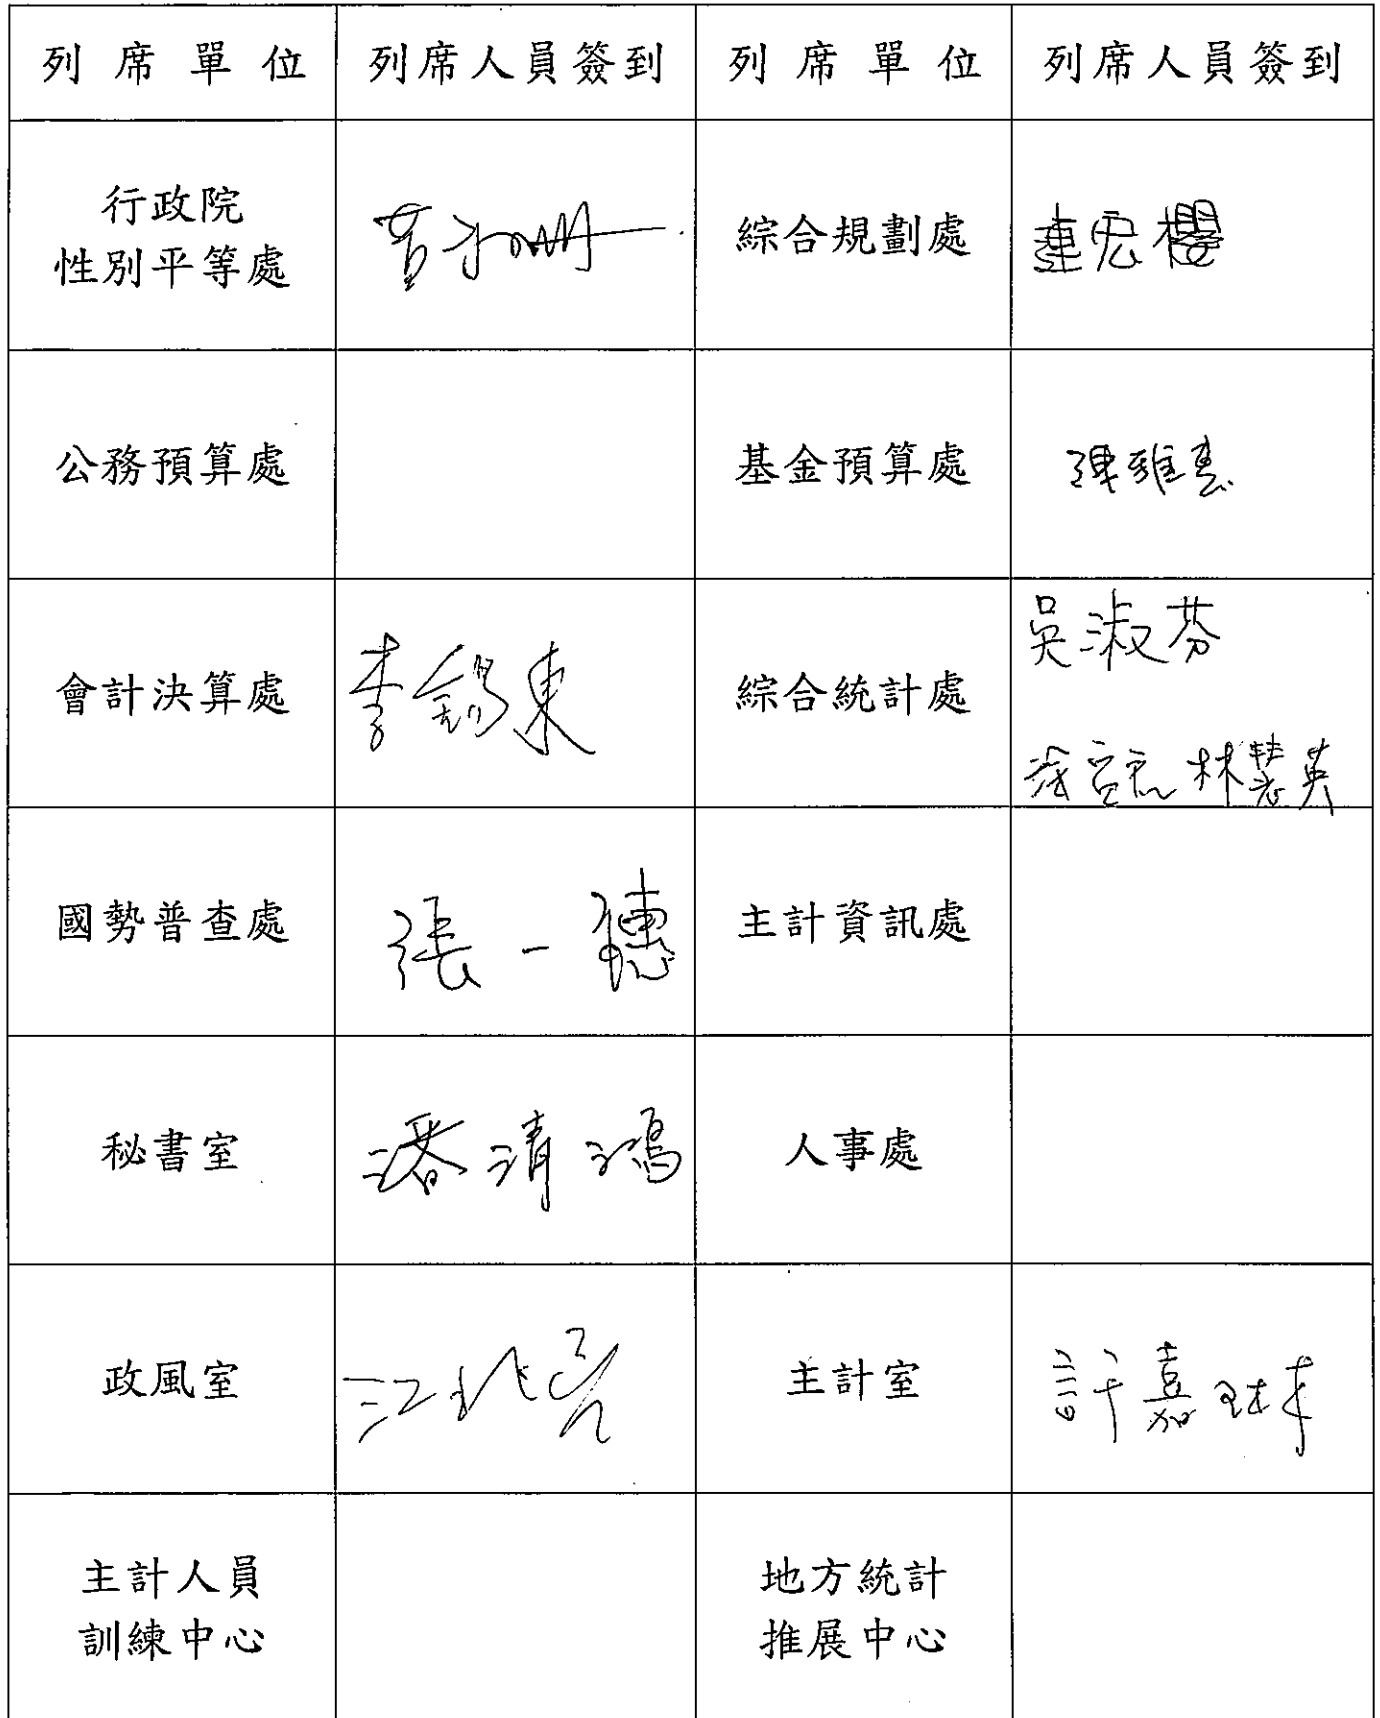 列席單位 列席人員簽到 列席單位 列席人員簽到
行政院
性別平等處
綜合規劃處 連宏櫻
公務預算處 基金預算處 陳雅惠
吳淑芬
會計決算處 李錫東 綜合統計處
林慧英
國勢普查處 張一穗 主計資訊處
秘書室 潘清鴻 人事處
政風室 江兆亮 主計室 許嘉琳
主計人員 地方統計
訓練中心 推展中心